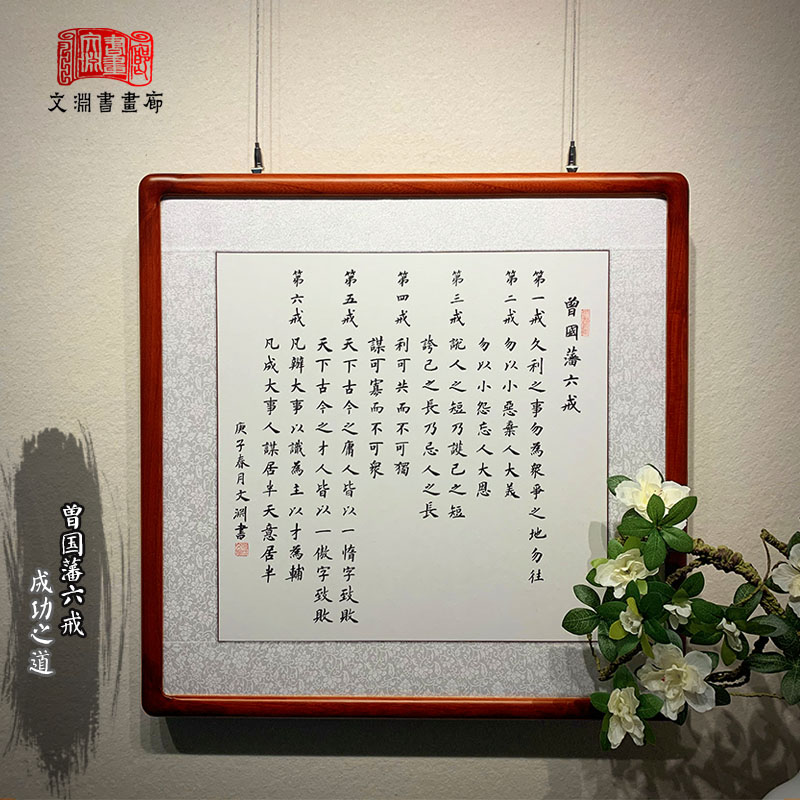 文淵書畫廊
曾國藩六戒
第一戒 久利之事勿為衆爭之地勿往
第二戒 勿以小惡棄人大義
勿以小怨忘人大恩
第三戒 說人之短乃護己之短
誇己之長乃忌人之長
第四戒 利可共而不可獨
謀可寡而不可衆
第五戒 天下古今之庸人皆以一惰字致敗
天下古今之才人皆以一傲字致敗
第六戒 凡辦大事以識為主以才為輔
凡成大事人謀居半天意居半
庚子春月文淵書
曾国藩六戒
成功之道